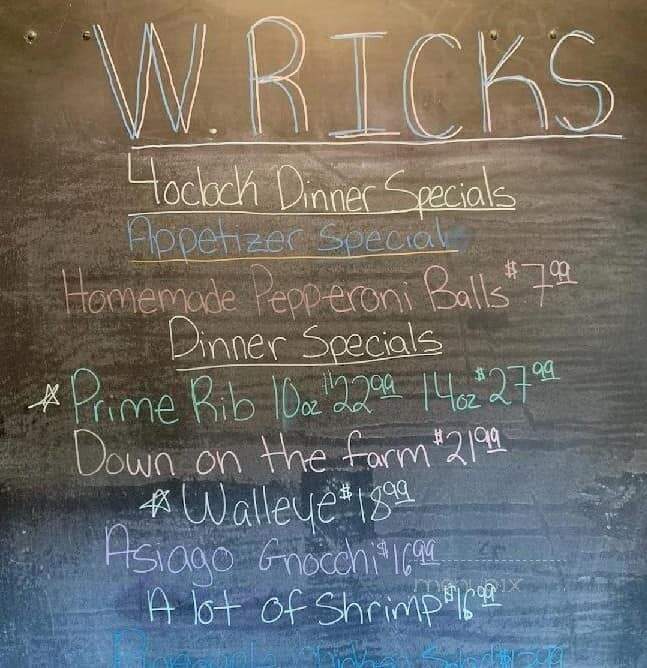 W. RICKS
4oclock Dinner Specials
Appetizer Specials
Homemade Pepperoni Balls $7.99
Dinner Specials
☆ Prime Rib 10oz $22.99 14oz $27.99
Down on the farm $21.99
☆ Walleye $18.99
Asiago Gnocchi $16.99
A lot of Shrimp $16.99